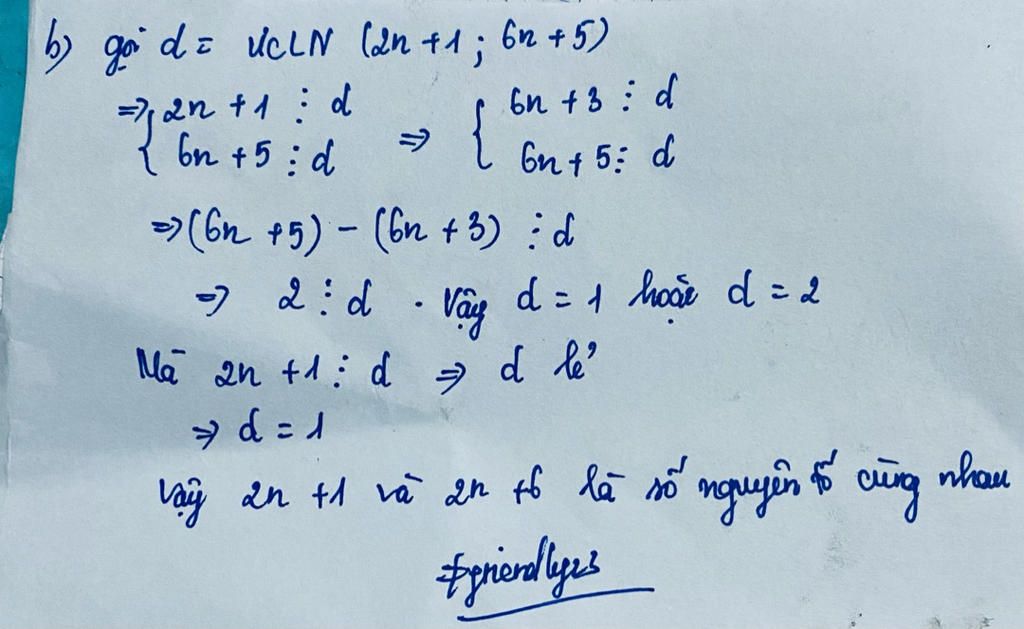 b) gọi d = ƯCLN (2n+1; 6n+5)
⇒ { 2n+1 ⋮ d
6n+5 ⋮ d ⇒ { 6n+3 ⋮ d
6n+5 ⋮ d
⇒ (6n+5) - (6n+3) ⋮ d
⇒ 2 ⋮ d . Vậy d = 1 hoặc d = 2
Mà 2n+1 ⋮ d ⇒ d lẻ
⇒ d = 1
Vậy 2n+1 và 2n+6 là số nguyên tố cùng nhau